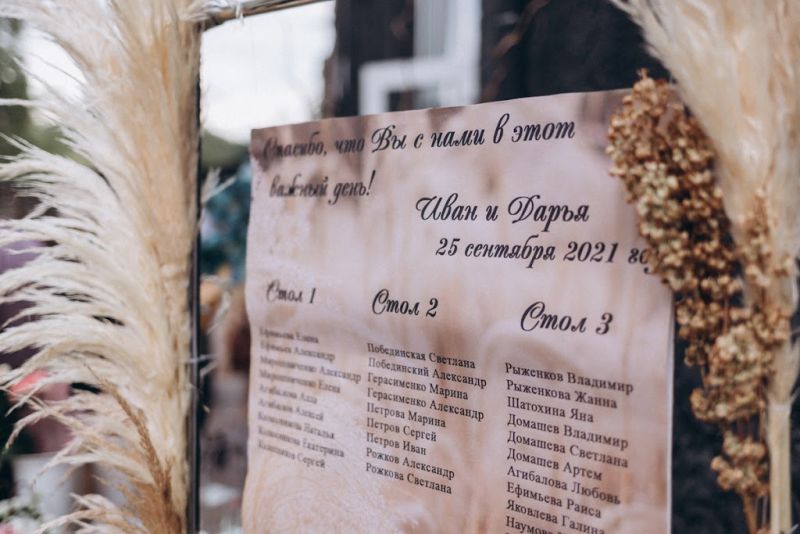 Спасибо, что Вы с нами в этот
важный день!
Иван и Дарья
25 сентября 2021
Стол 1
Ефимьева Елена
Ефимьев Александр
Мирошниченко Александр
Мирошниченко Елена
Агибалова Алла
Агибалов Алексей
Наталья
Екатерина
Сергей
Стол 2
Побединская Светлана
Побединский Александр
Герасименко Марина
Герасименко Александр
Петрова Марина
Петров Сергей
Петров Иван
Рожков Александр
Рожкова Светлана
Стол 3
Рыженков Владимир
Рыженкова Жанна
Шатохина Яна
Домашев Владимир
Домашева Светлана
Домашев Артем
Агибалова Любовь
Ефимьева Раиса
Яковлева Галина